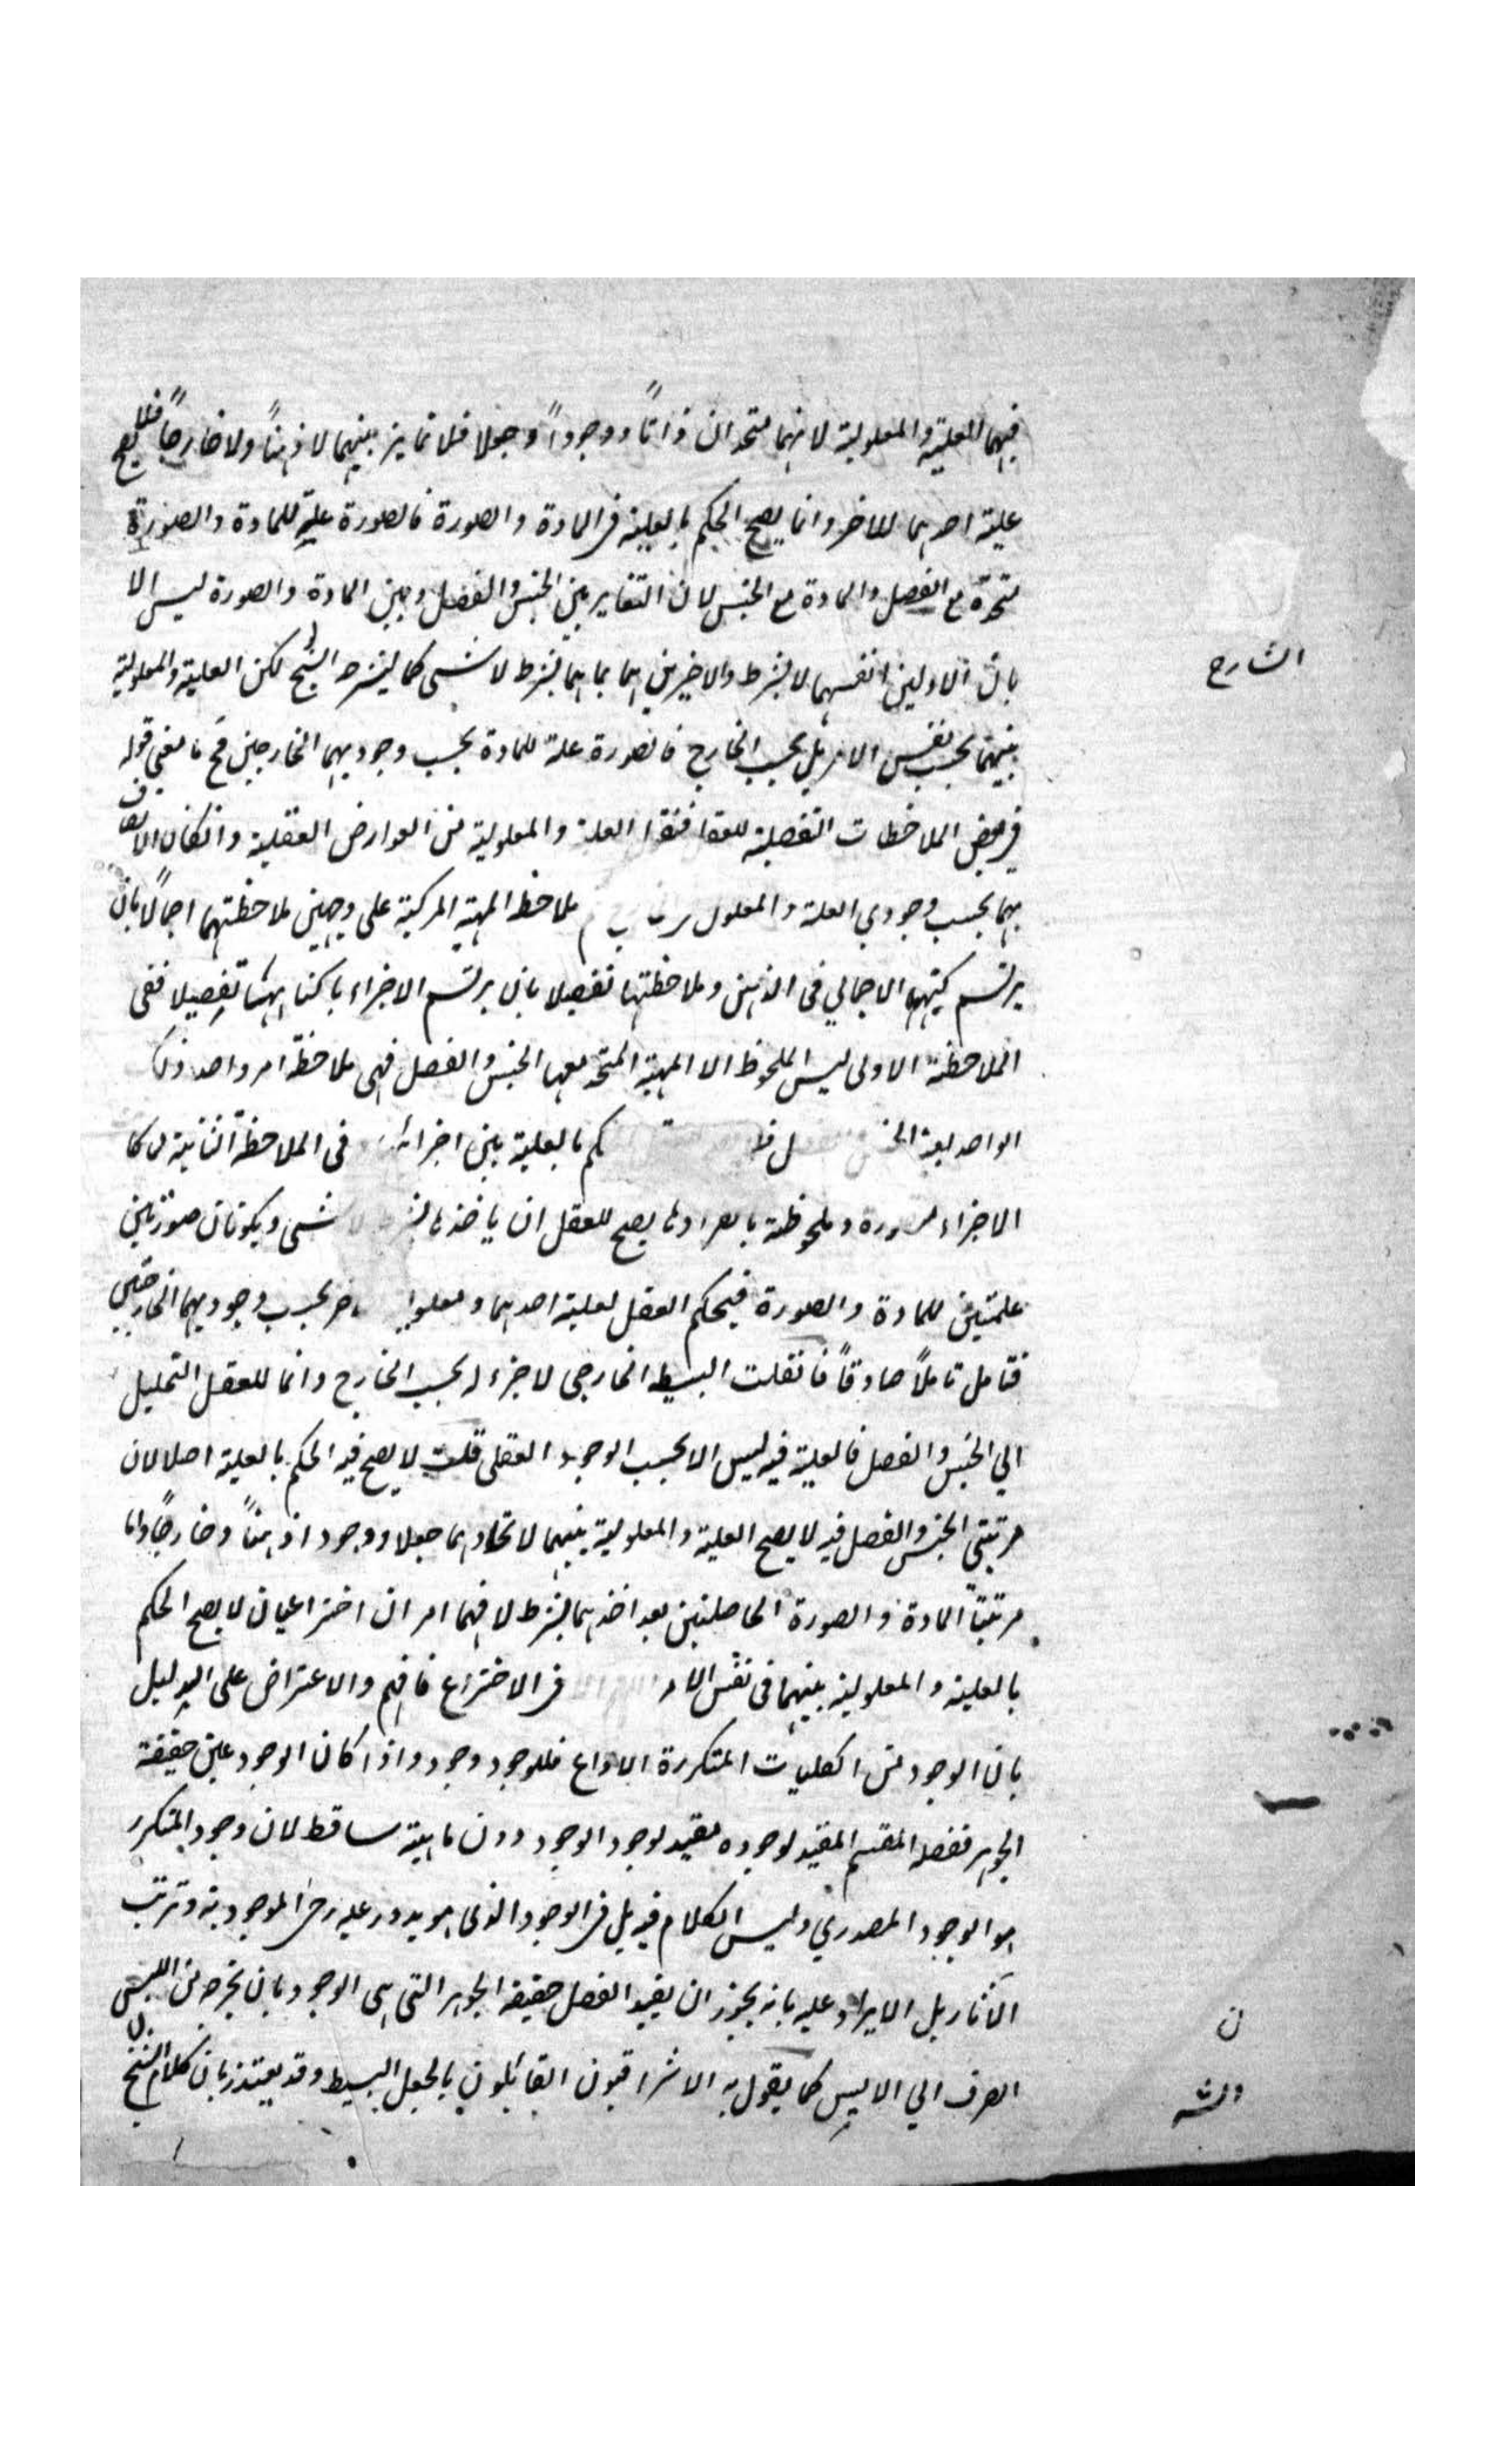 فيهما للعلية والمعلولية لانهما متحدان ذاتاً ووجوداً وجعلا فلا تمايز بينهما لا ذهناً ولا خارجاً فلا يصح
علية احدهما للاخر وانما يصح الحكم بالعلية في المادة والصورة فالصورة علة للمادة والصورة
متحدة مع الفصل والمادة مع الجنس لان التغاير بين الجنس والفصل وبين المادة والصورة ليس الا
بان الاولين انفسهما لا بشرط والاخيرين هما بماهما بشرط لا شيء كما الشيخ لكن العلية والمعلولية
الشارح
بينهما بحسب نفس الامر بل بحسب الخارج فالصورة علة للمادة بحسب وجوديهما الخارجين فح ما معنى قوله
في بعض الملاحظات التفصلية للعقل العلة والمعلولية من العوارض العقلية وانكان الاتصاف
بهما بحسب وجودي العلة والمعلول ملاحظ المهية المركبة على وجهين ملاحظتهما اجمالاً بان
يرتسم الاجمالي في الذهن وملاحظتها تفصيلا بان يرتسم الاجزاء باكناهها تفصيلا ففي
الملاحظة الاولى ليس الملحوظ الا المهية المتحد معها الجنس والفصل فهي ملاحظة امر واحد وذلك
الواحد بالعلية بين اجزائه في الملاحظة الثانية
الاجزاء وملحوظة يصح للعقل ان ياخذ شيء ويكونان صورتين
علميتين للمادة والصورة فيحكم العقل لعلية احدهما بحسب وجوديهما الخارجين
فتامل تاملاً صادقاً فانقلت البسيط الخارجي لا جزء له بحسب الخارج وانما للعقل التحليل
الي الجنس والفصل فالعلية فيه ليس الا بحسب الوجود العقلي قلت لا يصح فيه الحكم بالعلية اصلا لان
مرتبتي الجنس والفصل فيه لا يصح العلية والمعلولية بينهما لاتحادهما جعلا ووجودا ذهناً وخارجاً واما
مرتبتا المادة والصورة الحاصلتين بعد اخذهما بشرط لا فهما امران اختراعيان لا يصح الحكم
بالعلية والمعلولية بينهما في نفس الامر في الاختراع فافهم والاعتراض على الدليل
بان الوجود من الكليات المتكررة الانواع فللوجود وجود واذا كان الوجود عين حقيقة
الجوهر ففصله المقسم المفيد لوجوده مفيد لوجود الوجود دون ماهيته ساقط لان وجود المتكرر
هو الوجود المصدري وليس الكلام فيه بل في الوجود الذي هو يدور عليه رحى الموجودية وترتب
الآثار بل الايراد عليه بانه يجوز ان يفيد الفصل حقيقة الجوهر التي هي الوجود بان يخرجه من الليس
ن
الصرف الي الايس كما يقول به الاشراقيون القائلون بالجعل البسيط وقد يعتذر بان كلام الشيخ